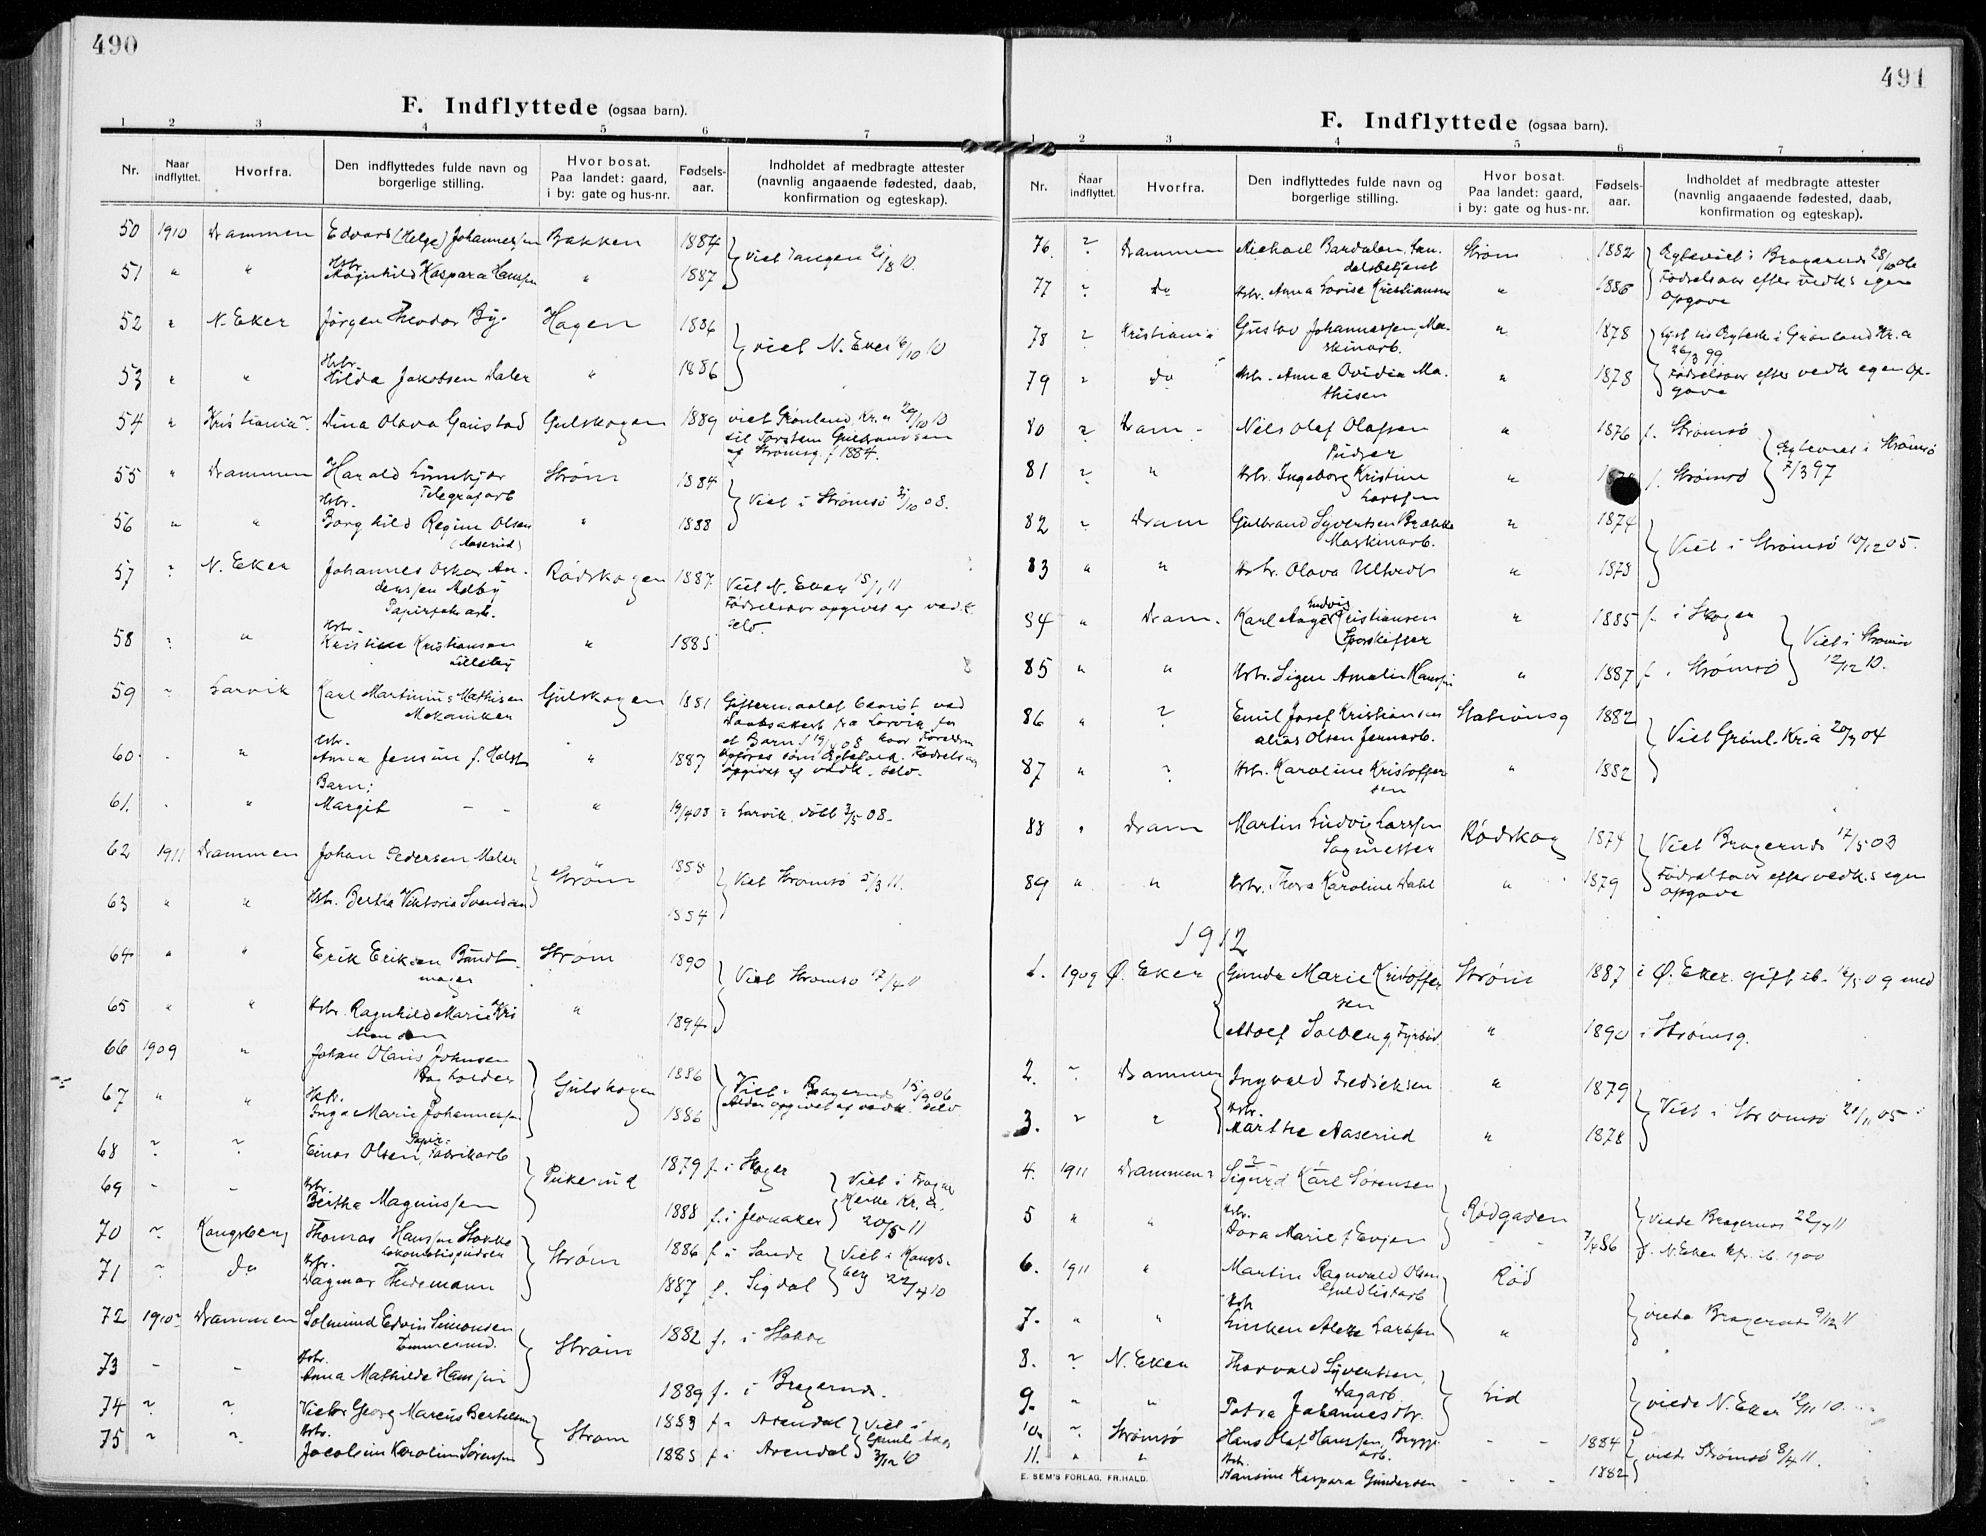 490
F. Indflyttede (ogsaa barn).
1 2 3 4 5 6 7
Nr. Naar indflyttet. Hvorfra. Den indflyttedes fulde navn og borgerlige stilling. Hvor bosat. Paa landet: gaard, i by: gate og hus-nr. Fødsels-aar. Indholdet af medbragte attester (navnlig angaaende fødested, daab, konfirmation og egteskap).
50 1910 Drammen Edvard (Helge) Johannessen Bakken 1884 viet Tangen 21/8 10.
51 " " Hstr. Ragnhild Kaspara Hansen " 1887
52 " N. Eker Jørgen Theodor By. Hagen 1886 viet N. Eker 16/10 10
53 " " Hstr. Hilda Jakobsen Daler " 1886
54 " Kristiania Dina Olava Gaustad Gulskogen 1889 viet Grønland Kr.a 29/10 10
til Torsten Gulbrandsen
af Strømsg. f. 1884.
55 " Drammen Harald Strøm 1884 Viet i Strømsø 31/10 08.
Telegrafarb
56 " " Hstr. Borghild Regine Olsen " 1888
(Aaserud)
57 " N. Eker Johannes Oskar An- Rødskogen 1887 Viet N. Eker 15/1 11
derssen Melby Fødselsaar opgivet af vedk.
Papirfabarb. selv.
58 " " Hstr. Kristine Kristiansen " 1885
Lilleby
59 " Larvik Karl Martinius Mathisen Gulskogen 1881 Giftermaalet bevist ved
Mekaniker Daabsattest fra Larvik for
et Barn f. 19/4 08 hvor Foreldre
60. " Hstr. Anna Jensine f. Holst " 1887 opføres som Egtefolk. Fødselsaar
opgivet af vedk. selv.
Barn:
61. " Margit - - " 19/4 08 i Larvik, døbt 3/5 08.
62 1911 Drammen Johan Pedersen Maler Strøm 1858 Viet Strømsø 5/3 11.
63 " " Hstr. Bertha Viktoria Svendsen 1854
64 " " Erik Eriksen Bundt- Strøm 1890 Viet Strømsø 17/4 11
mager
65 " " Hstr. Ragnhild Marie Kris- " 1894
tiansen
66 1909 " Johan Olaus Johnsen Gulskogen 1886 Viet i Bragernes 15/9 06
Bogholder Alder opgivet af vedk. selv
67 " " Hstr. Inga Marie Johannessen 1886
68 " " Einar Olsen, Papir-Fabrikarb Pukerud 1879 f. i Skoger Viet i Frogner
69 - - Hstr. Bertha Magnussen 1888 f. i Jevnaker Kirke Kr.a.
20/5 11
70 " Kongsberg Thomas Hansen Stokke Strøm 1886 f. i Sande Viet i Kongs-
Lokomotivpudser
71 " Do Hstr. Dagmar Thidemann 1887 f. Sigdal berg 22/4 10
72 1910 Drammen Solmund Edvin Simonsen Strøm 1882 f. i Stokke
Tømmermd.
73 - - Hstr. Anna Mathilde Hanssen 1889 f. i Bragernes.
74 " " Victor Georg Marcus Bertelsen Strøm 1883 f. i Arendal Viet i
75 " " Hstr. Jacobine Karoline Sørensen 1885 f. i Arendal 3/12 10
491
F. Indflyttede (ogsaa barn).
1 2 3 4 5 6 7
Nr. Naar indflyttet. Hvorfra. Den indflyttedes fulde navn og borgerlige stilling. Hvor bosat. Paa landet: gaard, i by: gate og hus-nr. Fødsels-aar. Indholdet af medbragte attester (navnlig angaaende fødested, daab, konfirmation og egteskap).
76. " Drammen Michael Bardalen, Han- Strøm 1882 Egteviet i Bragernes 28/10 06
delsbetjent
77 " Do Hstr. Anna Lovise Kristiansen " 1886 Fødselsaar efter vedk.s egen
opgave
78 " Kristiania Gustav Johannessen, Ma- " 1878 Lyst til Egtesk. i Grønland Kr.a
skinarb. 26/3 99.
79 " Do Hstr. Anna Ovidia Ma- " 1878 Fødselsaar efter vedk. egen op-
thisen gave
80 " Dram. Nils Olaf Olafsen " 1876 f. Strømsø Egteviet i Strømsø
Pudser
81 " " Hstr. Ingeborg Kristine " f. Strømsø 7/3 97
Larssen
82 " Dram Gulbrand Syvertsen Brække " 1874 Viet i Strømsø 10/12 05.
Maskinarb.
83 " " Hstr. Olava Ulbredt " 1878
84 " Dram. Karl Aage Ludvig Kristiansen " 1885 f. i Skoger Viet i Strømsø
Sporskifter
85 " " Hstr. Signe Amalie Hanssen " 1887 f. i Strømsø 12/12 10.
86 " " Emil Josef Kristiansen Stationsg 1882 Viet Grønl. Kr.a 20/3 04
alias Olsen Jernarb.
87 " " Hstr. Karoline Kristoffer- " 1882
sen
88 " Dram Martin Ludvig Larssen Rødskog 1874 Viet Bragernes 17/5 03
Sagmester
89 " " Hstr. Thora Karoline Dahl " 1879 Fødselsaar efter vedk.s egen
opgave
1912
1. 1909 Ø. Eker Gunda Marie Kristoffer- Strøm 1887 i Ø. Eker. gift ib. 16/5 09 med
sen
Adolf Solberg, Fyrbød. " 1890 i Strømsg.
2. " Drammen Ingvald Fredriksen " 1879 Viet i Strømsø 20/11 05
3. " " Hstr. Marthe Aaserud " 1878
4. 1911 Drammen Sigurd Karl Sørensen Rødgaden viede Bragernes 22/4 11
5 " " Hstr. Dora Marie f. Evjen - - 7/4 86 f. N. Eker kfr. ib. 1900
6. 1911 " Martin Ragnvald Olsen Rød viede Bragernes 9/12 11
Guldlistarb
7. " " Hstr. Linken Larssen "
8. " N. Eker Thorvald Syvertsen, Lid viede N. Eker 10.
Dagarb.
9. " " Petra Johannesdtr.
10. " Strømsø Hans Olaf Hanssen, Brygg. - - 1884 viede Strømsø 8/4 11.
arb.
11. " " Hstr. Hansine Kaspara Gundersen - - 1882
E. SEM'S FORLAG, FR.HALD.